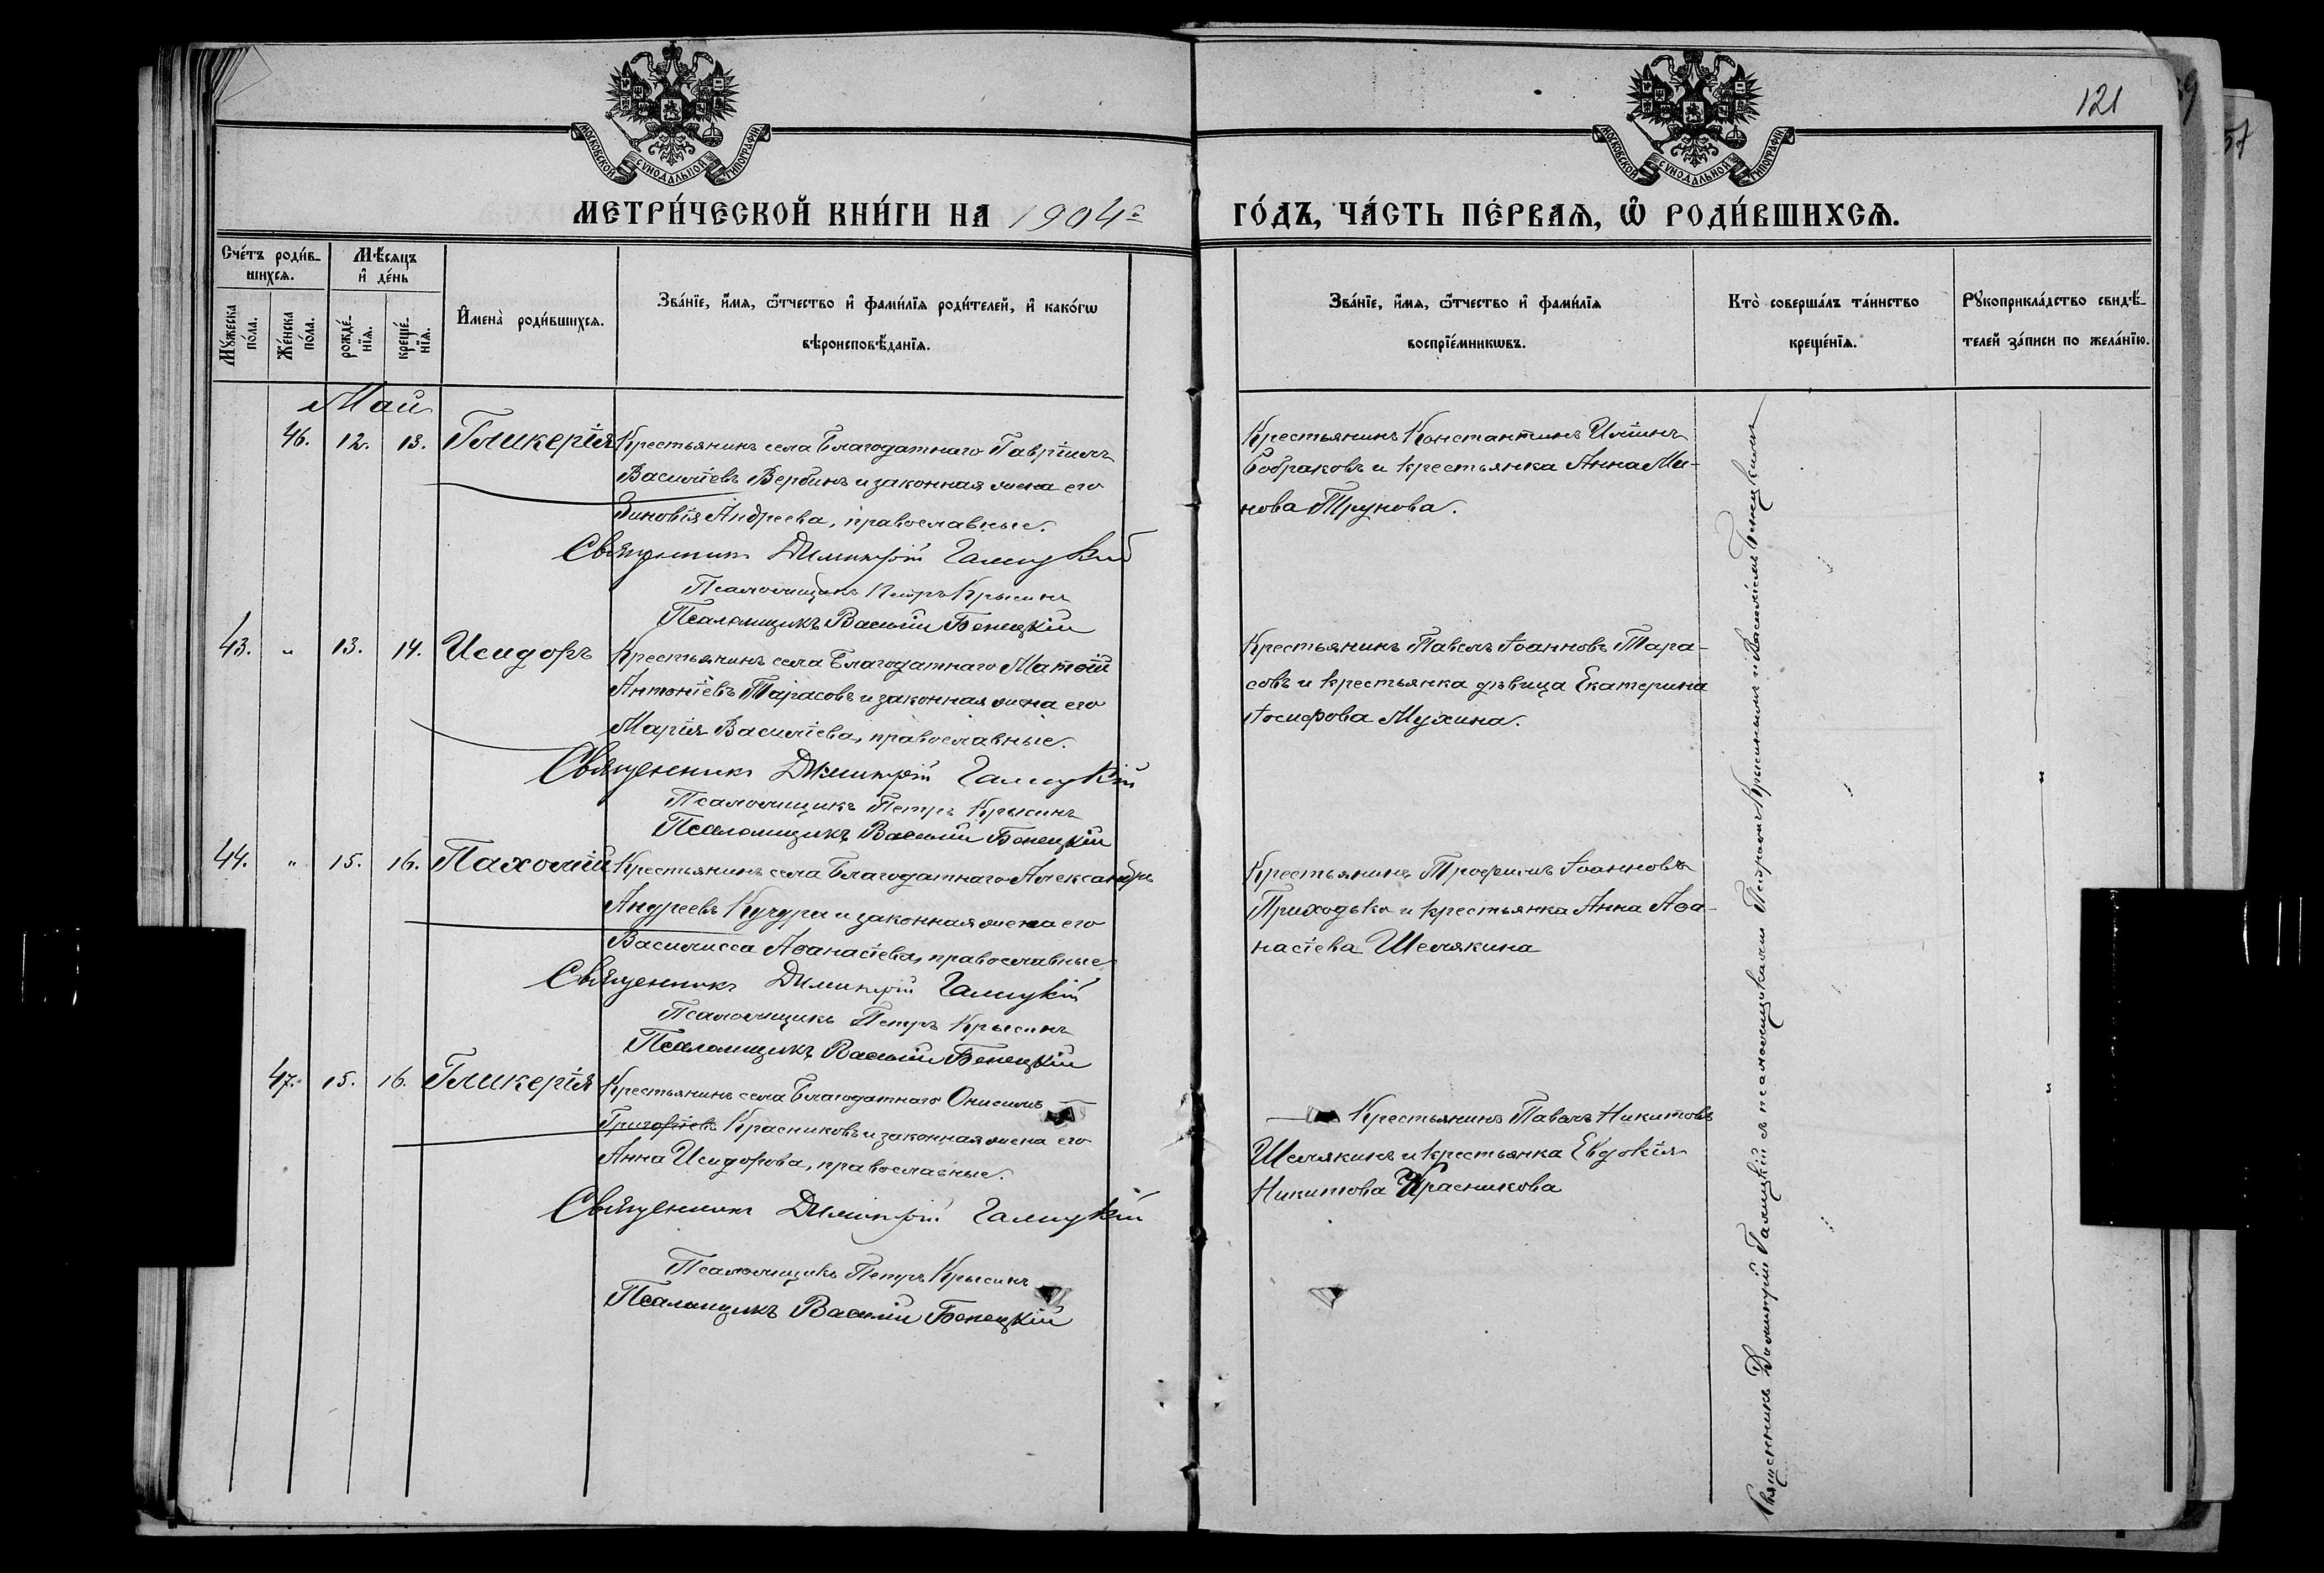 121
МОСКОВСКОЙ СУНОДАЛЬНОЙ ТИПОГРАФІИ
МОСКОВСКОЙ СУНОДАЛЬНОЙ ТИПОГРАФІИ
МЕТРИ́ЧЕСКОЙ КНИ́ГИ НА 1904 г҃ ГО́ДЪ, ЧА́СТЬ ПЕ́РВАѦ, Ѡ҆ РОДИ́ВШИХСѦ.
Сче́тъ роди́в-
шихсѧ.
Мѣ́сѧцъ
и҆ де́нь
Мꙋ́жеска
по́ла.
Же́нска
по́ла.
рожде́-
нїѧ.
креще́-
нїѧ.
И҆мена̀ роди́вшихсѧ.
Зва́нїе, и҆́мѧ, ѻ҆́тчество и҆ фами́лїѧ роди́телей, и҆ како́гѡ
вѣроисповѣ́данїѧ.
Зва́нїе, и҆́мѧ, ѻ҆́тчество и҆ фами́лїѧ
воспрїе́мникѡвъ.
Кто̀ соверша́лъ та́инство
креще́нїѧ.
Рꙋкоприкла́дство свидѣ́-
телей за́писи по жела́нїю.
Май
46. 12. 13. Гликерія Крестьянинъ села Благодатнаго Гавріилъ
Василіевъ Вербинъ и законная жена его
Зиновія Андреева, православные.
Священникъ Димитрій Галицкій
Псаломщикъ Петръ Крысинъ
Псаломщикъ Василій Бенецкій
Крестьянинъ Константинъ Иліинъ
Бобраковъ и крестьянка Анна Ми-
нова Трунова.
43. " 13. 14. Исидоръ Крестьянинъ села Благодатнаго Матѳій
Антоніевъ Тарасовъ и законная жена его
Марія Василіева, православные.
Священникъ Димитрій Галицкій
Псаломщикъ Петръ Крысинъ
Псаломщикъ Василій Бенецкій
Крестьянинъ Павелъ Іоанновъ Тара-
совъ и крестьянка дѣвица Екатерина
Іосифова Мухина.
44. " 15. 16. Пахомій Крестьянинъ села Благодатнаго Александръ
Андреевъ Кучура и законная жена его
Василисса Аѳанасіева, православные
Священникъ Димитрій Галицкій
Псаломщикъ Петръ Крысинъ
Псаломщикъ Василій Бенецкій
Крестьянинъ Трофимъ Іоанновъ
Приходько и крестьянка Анна Аѳа-
насіева Шемякина
47. 15. 16. Гликерія Крестьянинъ села Благодатнаго Онисимъ
Григоріевъ Красниковъ и законная жена его
Анна Исидорова, православные.
Священникъ Димитрій Галицкій
Псаломщикъ Петръ Крысинъ
Псаломщикъ Василій Бенецкій
Крестьянинъ Павелъ Никитовъ
Шемякинъ и крестьянка Евдокія
Никитова Красникова
Священникъ Димитрій Галицкій съ псаломщиками Петромъ Крысинымъ и Василіемъ Бенецкимъ